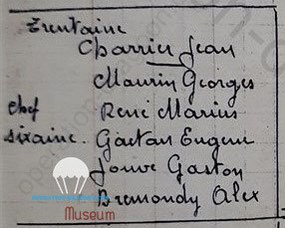 Trentaine
Charrier Jean
Maurin Georges
chef René Marius
sixaine. Gaëtan Eugene
Jouve Gaston
Bremondy Alex
Museum